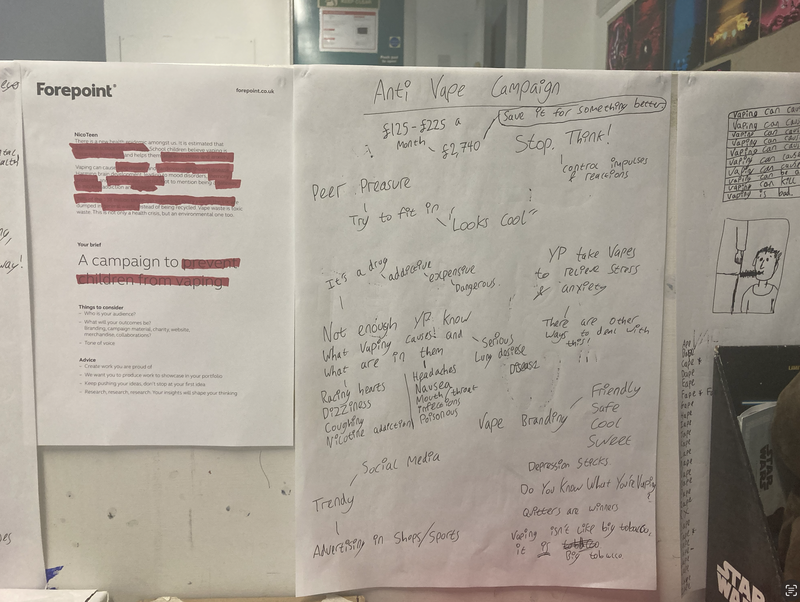 Forepoint
forepoint.co.uk
NicoTeen
There is a new health epidemic amongst us. It is estimated that
school children believe vaping is
and helps them
Vaping can cause
to mood disorders,
addiction
to mention being
dumped in
instead of being recycled. Vape waste is toxic
waste. This is not only a health crisis, but an environmental one too.
Your brief
A campaign to prevent
children from vaping
Things to consider
- Who is your audience?
- What will your outcomes be?
Branding, campaign material, charity, website,
merchandise, collaborations?
- Tone of voice
Advice
- Create work you are proud of
- We want you to produce work to showcase in your portfolio
- Keep pushing your ideas, don't stop at your first idea
- Research, research, research. Your insights will shape your thinking
Anti Vape Campaign
£125-£225 a
Month
£2,740
Save it for something better
Stop. Think!
control impulses
& reactions
Peer Preasure
Try to fit in
"Looks Cool"
It's a drug
addictive
expensive
Dangerous
YP take Vapes
to relieve Stress
& anxiety
There are other
ways to deal with
this!
Not enough YP know
What Vaping causes and
What are in them
Serious
Lung desiese
DISEASE
Racing hearts
Dizziness
Coughing
Nicotine addiction
Headaches
Nausea
Mouth/throat
infections
Poisonous
Vape Branding
Friendly
Safe
Cool
Sweet
Social Media
Trendy
Advertising in Shops/Sports
Depression Sticks
Do You Know What You're Vaping
?
Quitters are winners
Vaping isn't like big tobacco,
it is
Big tobacco
Vaping can cau
Vaping can cau
Vaping can
Vaping can
Vaping can
Vaping can
Vaping can be a
Vaping can kill
Vaping is bad
STAR
WARS
STAR
WA